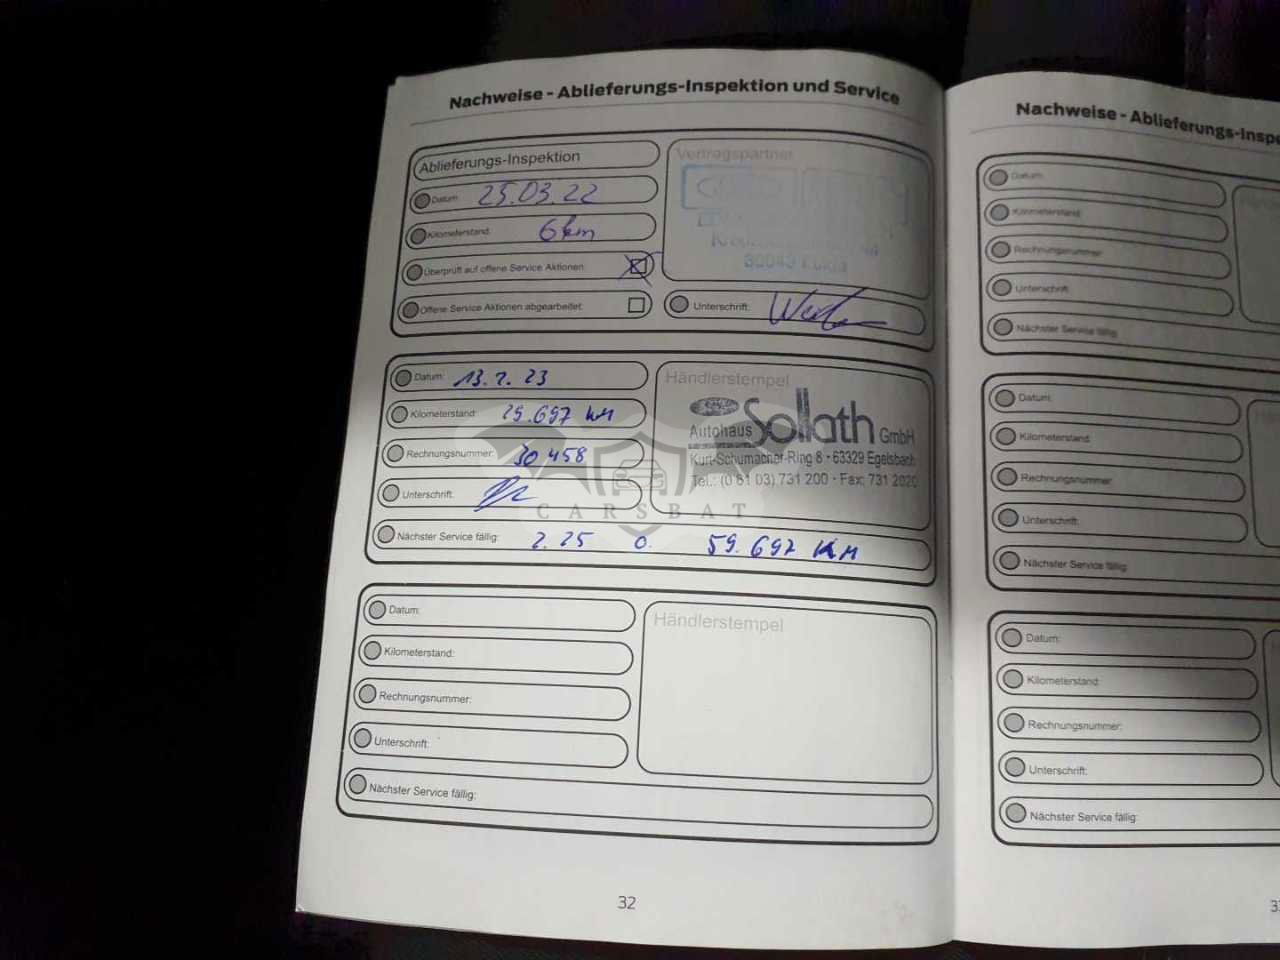 Nachweise - Ablieferungs-Inspektion und Service
Ablieferungs-Inspektion
Datum: 25.03.22
Kilometerstand: 6 km
Überprüft auf offene Service Aktionen:
Offene Service Aktionen abgearbeitet:
Vertragspartner
Unterschrift:
Datum: 13.2.23
Kilometerstand: 29.697 KM
Rechnungsnummer: 30 458
Unterschrift:
Nächster Service fällig: 2.25 o. 59.697 KM
Händlerstempel
Autohaus Sollath GmbH
Kurt-Schumacher-Ring 8 • 63329 Egelsbach
Tel.: (0 61 03) 731 200 • Fax: 731 2020
CARSBAT
Datum:
Kilometerstand:
Rechnungsnummer:
Unterschrift:
Nächster Service fällig:
Händlerstempel
32
Nachweise - Ablieferungs-Inspe
Datum:
Kilometerstand:
Rechnungsnummer:
Unterschrift:
Nächster Service fällig:
Datum:
Kilometerstand:
Rechnungsnummer:
Unterschrift:
Nächster Service fällig:
Datum:
Kilometerstand:
Rechnungsnummer:
Unterschrift:
Nächster Service fällig: